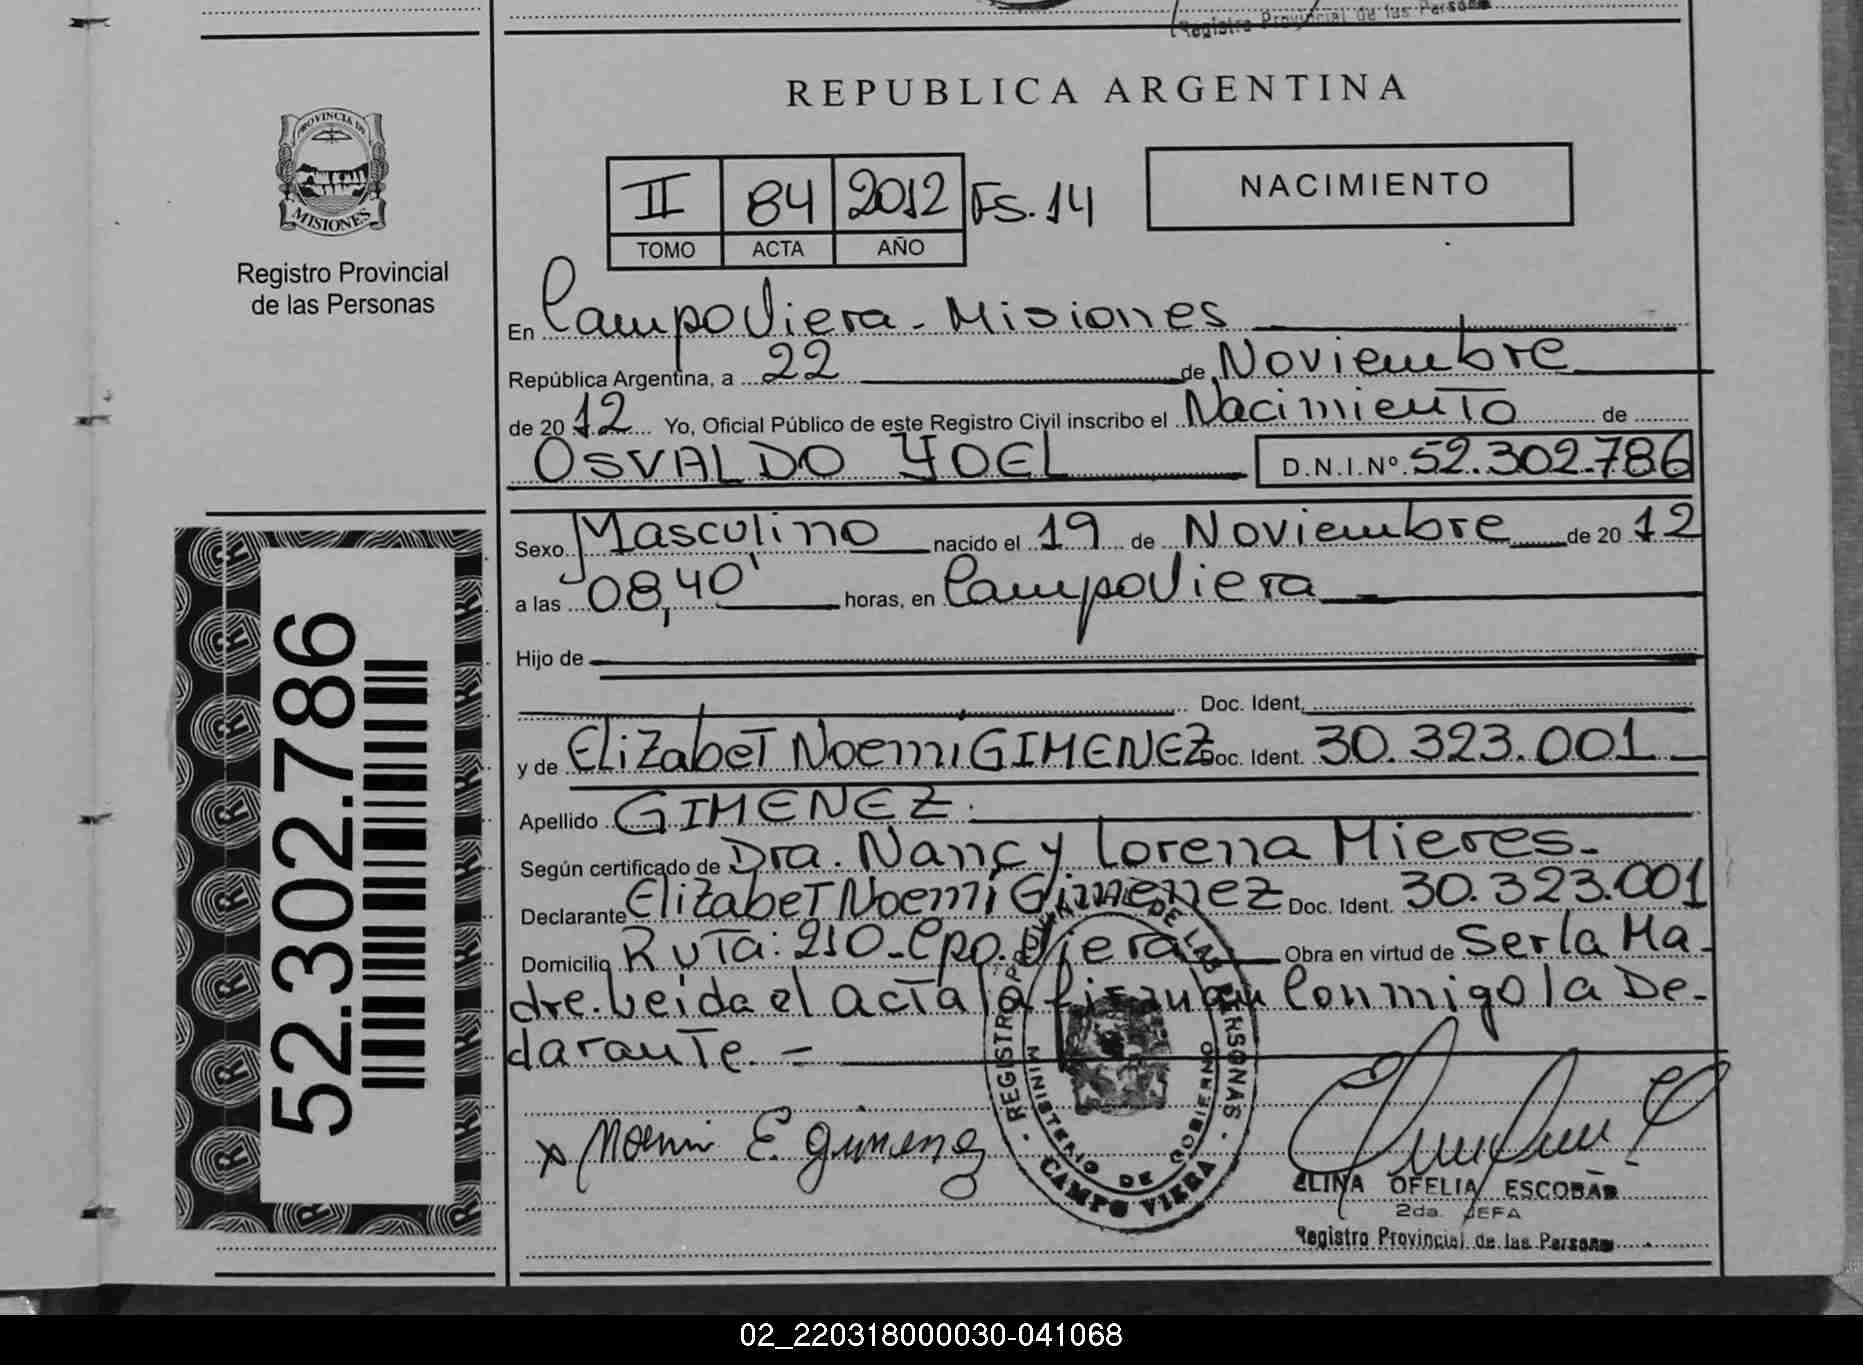 Registro Provincial de las Persona
REPUBLICA ARGENTINA
PROVINCIA DE
MISIONES
Registro Provincial
de las Personas
II 84 2012 Fs. 14
TOMO ACTA AÑO
NACIMIENTO
En Campo Viera - Misiones
República Argentina, a 22 de Noviembre
de 2012 Yo, Oficial Público de este Registro Civil inscribo el Nacimiento de
OSVALDO YOEL D.N.I.Nº 52.302.786
Sexo Masculino nacido el 19 de Noviembre de 2012
a las 08,40' horas, en Campo Viera
Hijo de
Doc. Ident.
y de ElizabeT Noemi GIMENEZ Doc. Ident. 30.323.001
Apellido GIMENEZ.
Según certificado de Dra. Nancy Lorena Mieres.
Declarante ElizabeT Noemi Gimenez Doc. Ident. 30.323.001
Domicilio RuTa: 210 - Cpo. Viera Obra en virtud de Ser la Ma-
dre. Leida el acTa la firman Conmigo la De-
claranTe. -
x Noemi E. Gimenez
REGISTRO PROVINCIAL DE LAS PERSONAS
MINISTERIO DE GOBIERNO
CAMPO VIERA
ELINA OFELIA ESCOBAR
2da. JEFA
Registro Provincial de las Personas
52.302.786
02_220318000030-041068